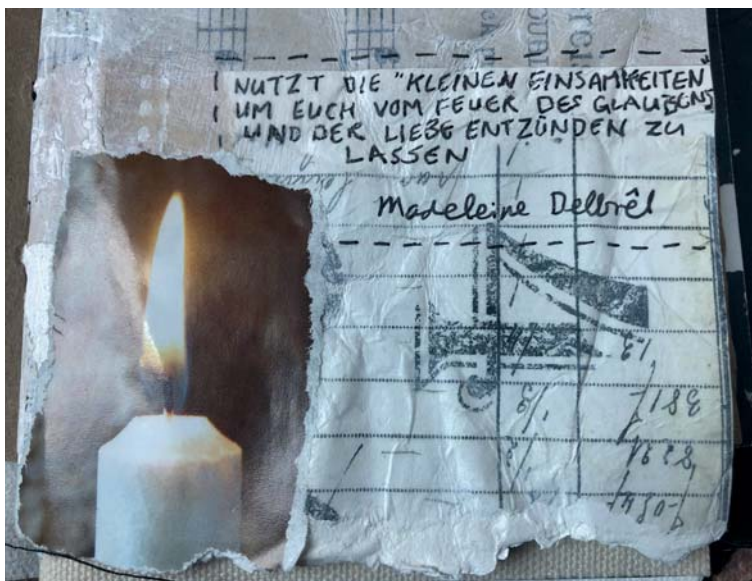 NUTZT DIE "KLEINEN EINSAMKEITEN"
UM EUCH VOM FEUER DES GLAUBENS
UND DER LIEBE ENTZÜNDEN ZU
LASSEN
Madeleine Delbrêl